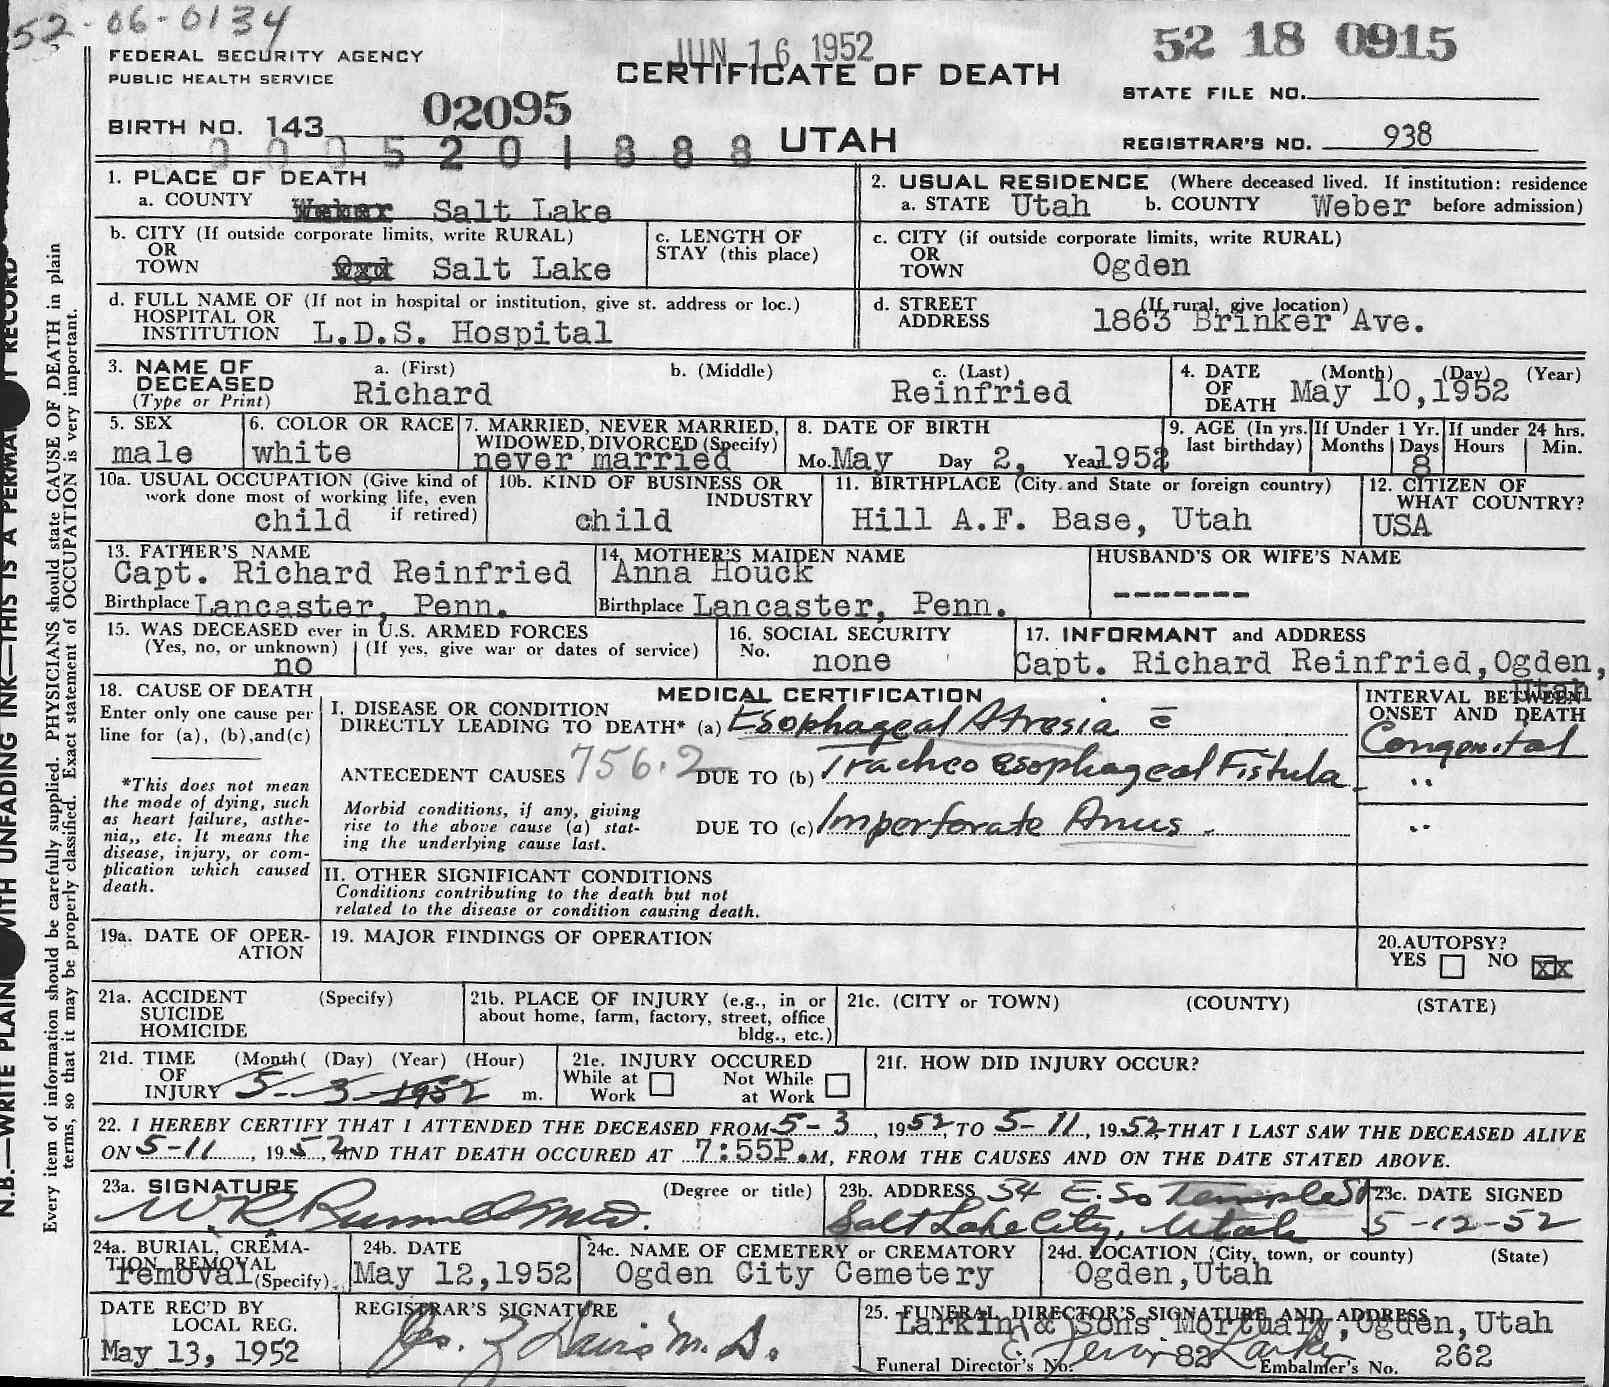 52-06-0134
FEDERAL SECURITY AGENCY
PUBLIC HEALTH SERVICE
JUN 16 1952
CERTIFICATE OF DEATH
52 18 0915
STATE FILE NO.
BIRTH NO. 143
02095
0005201888
UTAH
REGISTRAR'S NO. 938
1. PLACE OF DEATH
a. COUNTY Weber Salt Lake
b. CITY (If outside corporate limits, write RURAL)
OR
TOWN Ogd Salt Lake
c. LENGTH OF
STAY (this place)
d. FULL NAME OF (If not in hospital or institution, give st. address or loc.)
HOSPITAL OR
INSTITUTION L.D.S. Hospital
2. USUAL RESIDENCE (Where deceased lived. If institution: residence
a. STATE Utah b. COUNTY Weber before admission)
c. CITY (if outside corporate limits, write RURAL)
OR
TOWN Ogden
d. STREET (If rural, give location)
ADDRESS 1863 Brinker Ave.
3. NAME OF a. (First) b. (Middle) c. (Last)
DECEASED
(Type or Print) Richard Reinfried
4. DATE (Month) (Day) (Year)
OF
DEATH May 10,1952
5. SEX
male
6. COLOR OR RACE
white
7. MARRIED, NEVER MARRIED,
WIDOWED, DIVORCED (Specify)
never married
8. DATE OF BIRTH
Mo. May Day 2, Year 1952
9. AGE (In yrs. If Under 1 Yr. If under 24 hrs.
last birthday) Months Days Hours Min.
8
10a. USUAL OCCUPATION (Give kind of
work done most of working life, even
child if retired)
10b. KIND OF BUSINESS OR
INDUSTRY
child
11. BIRTHPLACE (City and State or foreign country)
Hill A.F. Base, Utah
12. CITIZEN OF
WHAT COUNTRY?
USA
13. FATHER'S NAME
Capt. Richard Reinfried
Birthplace Lancaster, Penn.
14. MOTHER'S MAIDEN NAME
Anna Houck
Birthplace Lancaster, Penn.
HUSBAND'S OR WIFE'S NAME
-------
15. WAS DECEASED ever in U.S. ARMED FORCES
(Yes, no, or unknown) (If yes, give war or dates of service)
no
16. SOCIAL SECURITY
No. none
17. INFORMANT and ADDRESS
Capt. Richard Reinfried,Ogden,
Utah
18. CAUSE OF DEATH
Enter only one cause per
line for (a), (b),and(c)
*This does not mean
the mode of dying, such
as heart failure, asthe-
nia,, etc. It means the
disease, injury, or com-
plication which caused
death.
MEDICAL CERTIFICATION
I. DISEASE OR CONDITION
DIRECTLY LEADING TO DEATH* (a) Esophageal Atresia c̄
ANTECEDENT CAUSES 756.2 DUE TO (b) Tracheo esophageal Fistula
Morbid conditions, if any, giving
rise to the above cause (a) stat-
ing the underlying cause last.
DUE TO (c) Imperforate Anus.
INTERVAL BETWEEN
ONSET AND DEATH
Congenital
"
"
II. OTHER SIGNIFICANT CONDITIONS
Conditions contributing to the death but not
related to the disease or condition causing death.
19a. DATE OF OPER-
ATION
19. MAJOR FINDINGS OF OPERATION
20.AUTOPSY?
YES NO XX
21a. ACCIDENT (Specify)
SUICIDE
HOMICIDE
21b. PLACE OF INJURY (e.g., in or
about home, farm, factory, street, office
bldg., etc.)
21c. (CITY or TOWN) (COUNTY) (STATE)
21d. TIME (Month( (Day) (Year) (Hour)
OF
INJURY 5-3-1952 m.
21e. INJURY OCCURED
While at Not While
Work at Work
21f. HOW DID INJURY OCCUR?
22. I HEREBY CERTIFY THAT I ATTENDED THE DECEASED FROM 5-3, 1952, TO 5-11, 1952, THAT I LAST SAW THE DECEASED ALIVE
ON 5-11, 1952, AND THAT DEATH OCCURED AT 7:55P.M, FROM THE CAUSES AND ON THE DATE STATED ABOVE.
23a. SIGNATURE (Degree or title)
W.R. MD.
23b. ADDRESS 54 E. So Temple St
Salt Lake City, Utah
23c. DATE SIGNED
5-12-52
24a. BURIAL, CREMA-
TION, REMOVAL
removal (Specify)
24b. DATE
May 12,1952
24c. NAME OF CEMETERY or CREMATORY
Ogden City Cemetery
24d. LOCATION (City, town, or county) (State)
Ogden,Utah
DATE REC'D BY
LOCAL REG.
May 13, 1952
REGISTRAR'S SIGNATURE
Davis M.D.
25. FUNERAL DIRECTOR'S SIGNATURE AND ADDRESS
Larkin & Sons Mortuary,Ogden,Utah
Larkin
Funeral Director's No. 82 Embalmer's No. 262
RECORD
N.B.—WRITE PLAIN WITH UNFADING INK—THIS IS A PERMA
Every item of information should be carefully supplied. PHYSICIANS should state CAUSE OF DEATH in plain
terms, so that it may be properly classified. Exact statement of OCCUPATION is very important.